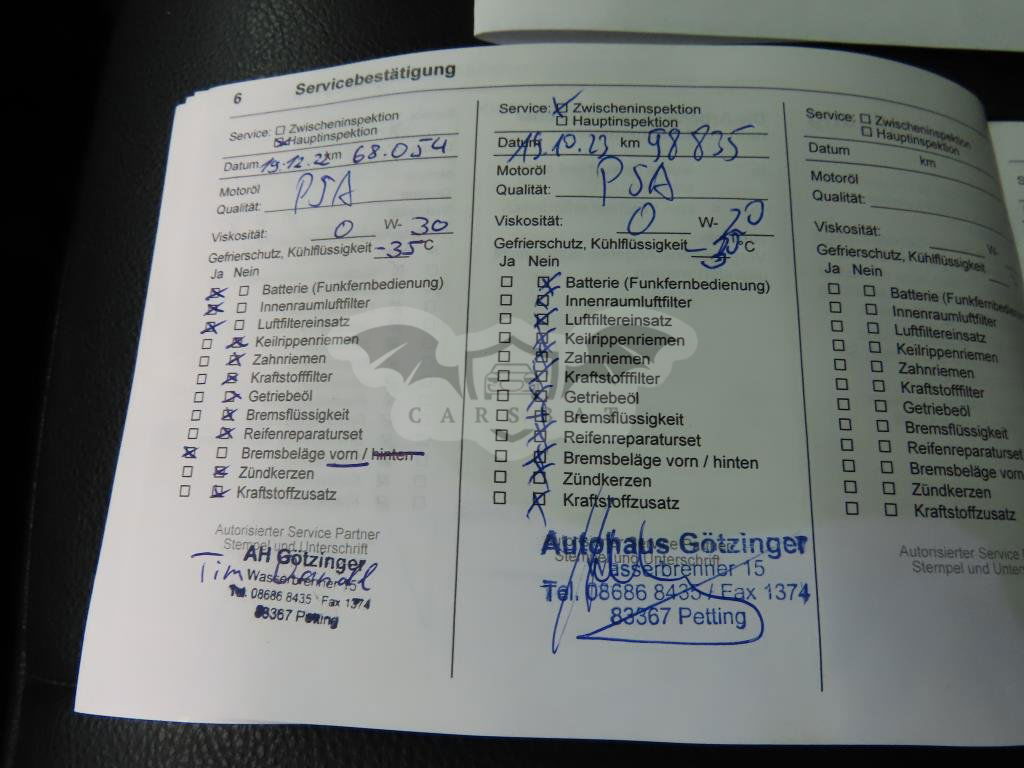 6 Servicebestätigung
Service: Zwischeninspektion
Hauptinspektion
Datum 19.12.22 km 68.054
Motoröl
Qualität: PSA
Viskosität: 0 W- 30
Gefrierschutz, Kühlflüssigkeit -35°C
Ja Nein
Batterie (Funkfernbedienung)
Innenraumluftfilter
Luftfiltereinsatz
Keilrippenriemen
Zahnriemen
Kraftstofffilter
Getriebeöl
Bremsflüssigkeit
Reifenreparaturset
Bremsbeläge vorn / hinten
Zündkerzen
Kraftstoffzusatz
Autorisierter Service Partner
Stempel und Unterschrift
AH Götzinger
Tim
Wasserbrenner 15
Tel. 08686 8435 Fax 1374
83367 Petting
Service: Zwischeninspektion
Hauptinspektion
Datum 19.10.23 km 98835
Motoröl
Qualität: PSA
Viskosität: 0 W-
Gefrierschutz, Kühlflüssigkeit °C
Ja Nein
Batterie (Funkfernbedienung)
Innenraumluftfilter
Luftfiltereinsatz
Keilrippenriemen
Zahnriemen
Kraftstofffilter
Getriebeöl
Bremsflüssigkeit
Reifenreparaturset
Bremsbeläge vorn / hinten
Zündkerzen
Kraftstoffzusatz
Autohaus Götzinger
Stempel und Unterschrift
Wasserbrenner 15
Tel. 08686 8435 / Fax 1374
83367 Petting
Service: Zwischeninspektion
Hauptinspektion
Datum km
Motoröl
Qualität:
Viskosität: W-
Gefrierschutz, Kühlflüssigkeit
Ja Nein
Batterie (Funkfernbedienung
Innenraumluftfilter
Luftfiltereinsatz
Keilrippenriemen
Zahnriemen
Kraftstofffilter
Getriebeöl
Bremsflüssigkeit
Reifenreparaturset
Bremsbeläge vorn
Zündkerzen
Kraftstoffzusatz
Autorisierter Service
Stempel und Unters
CARSBAT